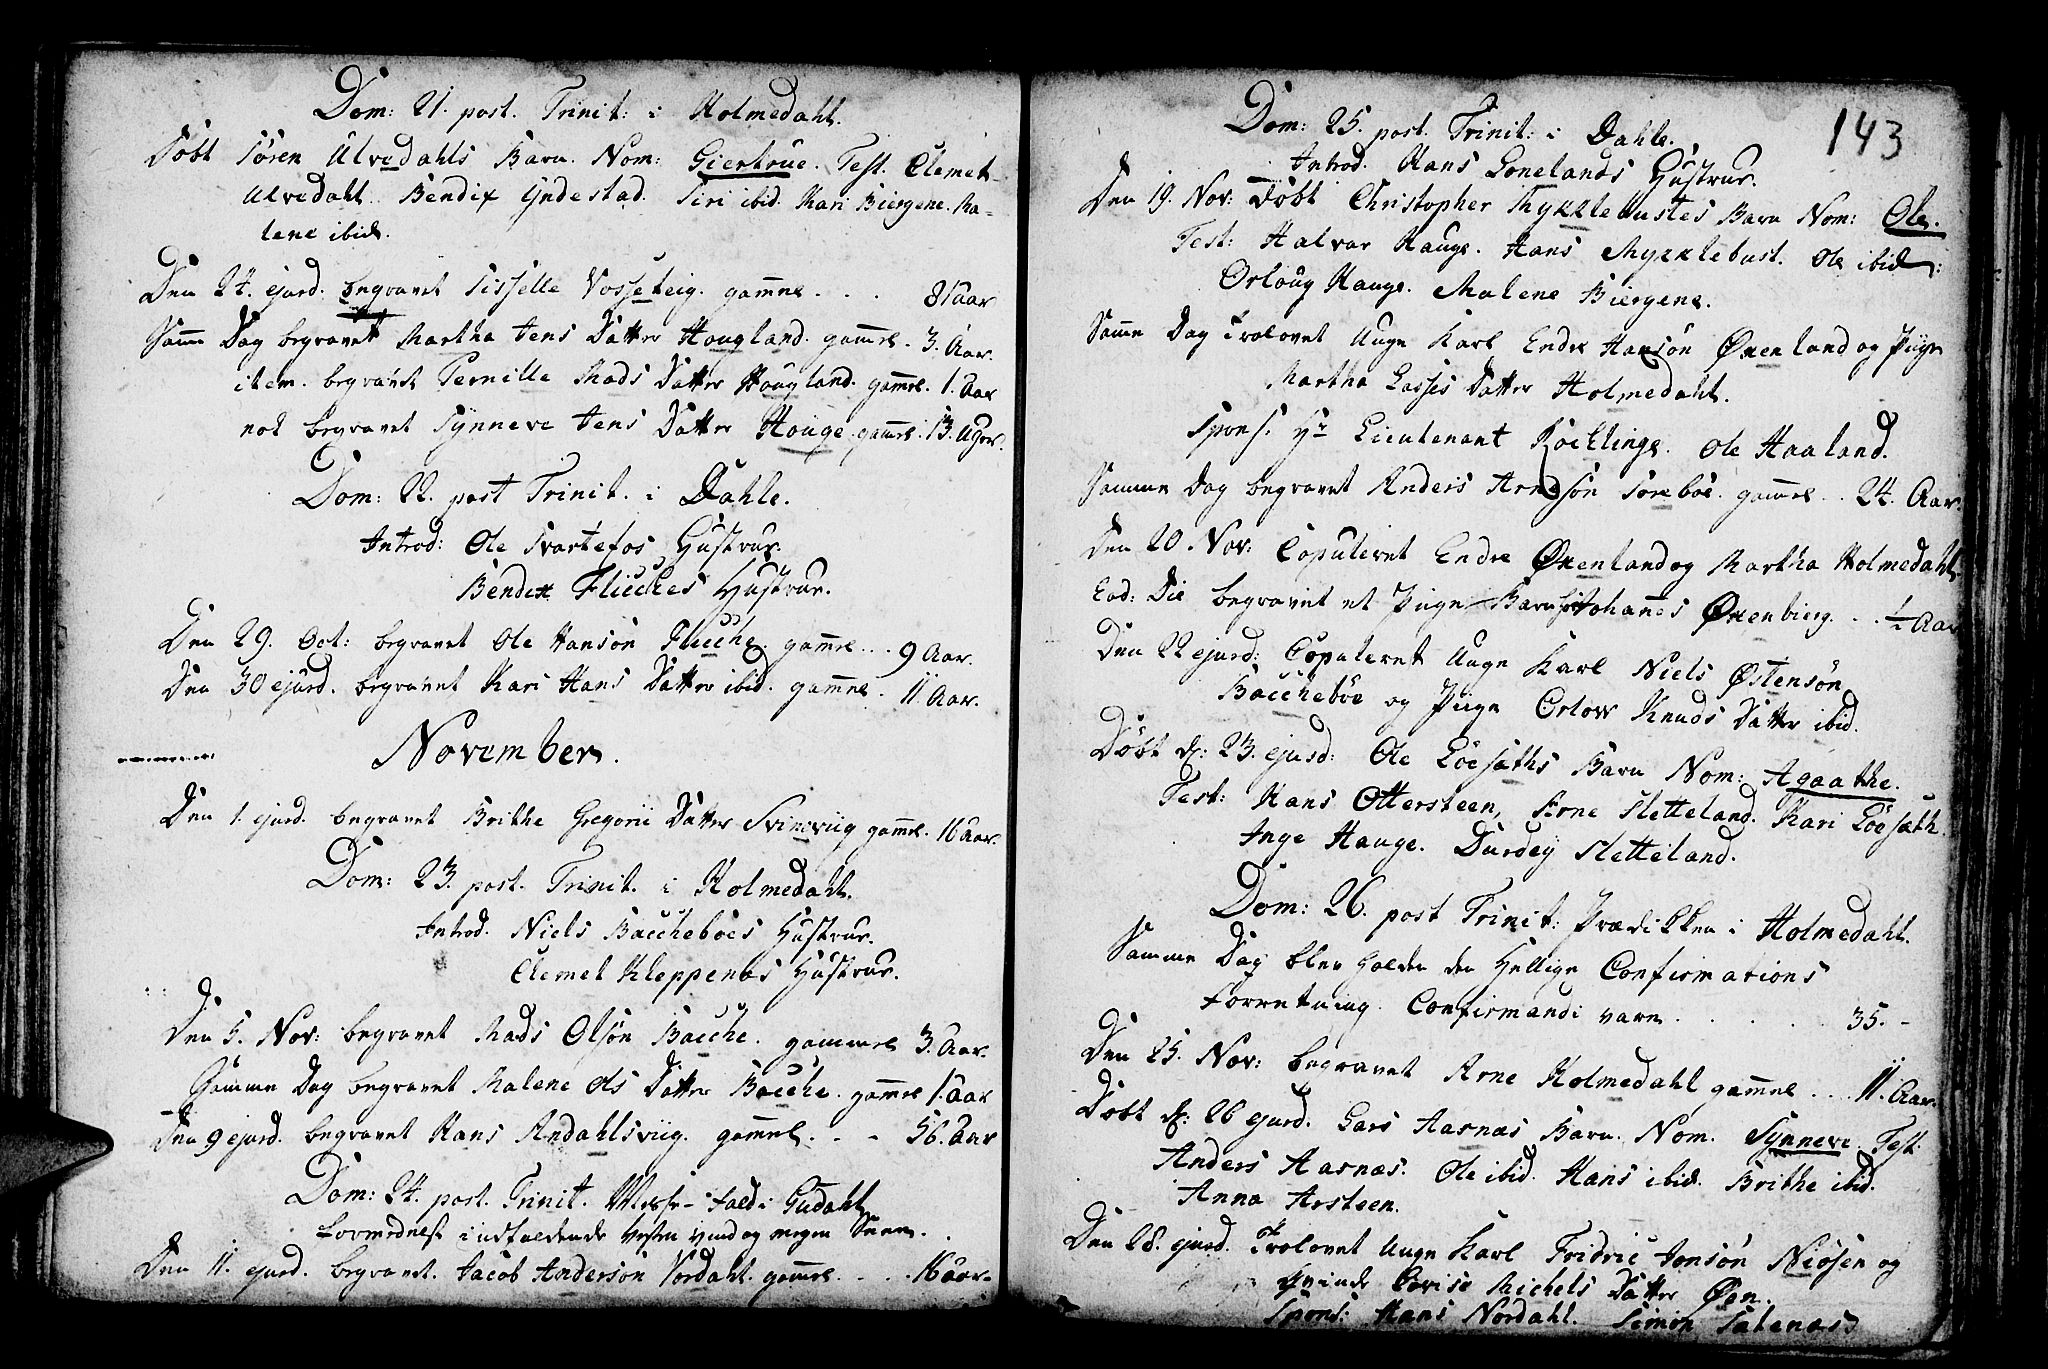 Dom: 21. post. Trinit: i Holmedahl.
Döbt Sören Ulvedahls Barn. Nom: Giertrue. Test. Clemet
Ulvedahl. Bendix Yndestad. Siri ibid. Kari Biergene. Ma-
lene ibid.
Den 24. ejusd. begravet Sisselle Vosseteig. gammel . . . 81 Aar
Samme Dag begravet Martha Jens Datter Hougland. gammel. 3. Aar.
item. begravet Pernille Mads Datter Hougland. gammel. 1. Aar
nok begravet Synneve Jens Datter Houge. gammel. 13. Uger.
Dom: 22. post Trinit. i Dahle.
Introd: Ole Svartefos Hustrue.
Bendix Flecches Hustrue.
Den 29. Oct: begravet Ole Hansön Flecche. gammel . . . 9 Aar.
Den 30 ejusd. begravet Kari Hans Datter ibid. gammel. 11. Aar.
November.
Den 1. ejusd. begravet Brithe Gregorii Datter Svinevüg gammel. 16 Aar.
Dom: 23. post. Trinit. i Holmedahl.
Introd. Niels Baccheböes Hustrue.
Clemet Kleppenes Hustrue.
Den 5. Nov: begravet Mads Olsön Bacche. gammel 3. Aar.
Samme Dag begravet Malene Ols Datter Bacche. gammel 1. Aar
Den 9 ejusd. begravet Hans Andahlsvüg. gammel. - - 56. Aar
Dom: 24. post. Trinit. Messe-Fald i Gudahl
formedelst indfaldende Vesten Vind og megen Snee.
Den 11. ejusd. begravet. Jacob Andersön Vordahl. gammel . . . 16 Aar.
143
Dom: 25. post. Trinit: i Dahle.
Introd. Hans Lonelands Hustrue.
Den 19. Nov: Döbt Christopher Mykklebustes Barn Nom: Ole.
Test: Halvor Hauge. Hans Mykklebust. Ole ibid:
Orloug Hauge. Malene Biergene.
Samme Dag Trolovet Unge Karl Endre Hansön Øxenland og Pige
Martha Lasses Datter Holmedahl.
Spons. Hr Lieutenant Koetlinge. Ole Haaland.
Samme Dag begravet Anders Arnesön Söreböe. gammel . . 24. Aar.
Den 20. Nov: Copuleret Endre Øxenland og Martha Holmedahl.
Eod: Die begravet et Pige Barn Johannes Øxenbierg. . . ½ Aar
Den 22 ejusd: Copuleret Unge Karl Niels Østensön
Bacchebøe og Pige Orlow Knuds Datter ibid.
Döbt d: 23. ejusd: Ole Löesæths Barn Nom: Agaathe.
Test: Hans Ottersteen, Arne Sletteland. Kari Löesæth.
Inge Hauge. Durdey Sletteland.
Dom: 26. post Trinit: Prædikken i Holmedahl.
Samme Dag blev holden den Hellige Confirmations
Forretning. Confirmandi vare . . . . . 35. -
Den 25. Nov: begravet Arne Holmedahl gammel . . . 11. Aar.
Döbt d: 26 ejusd. Lars Aarnæs Barn. Nom. Synneve. Test.
Anders Aarnæs. Ole ibid. Hans ibid. Brithe ibid.
Anna Arsteen.
Den 28. ejusd. Trolovet Unge Karl Fridric Jonsön Niösen og
Qvinde Lovise Michels Datter Øen.
Spons: Hans Nordahl. Simon Salenæs